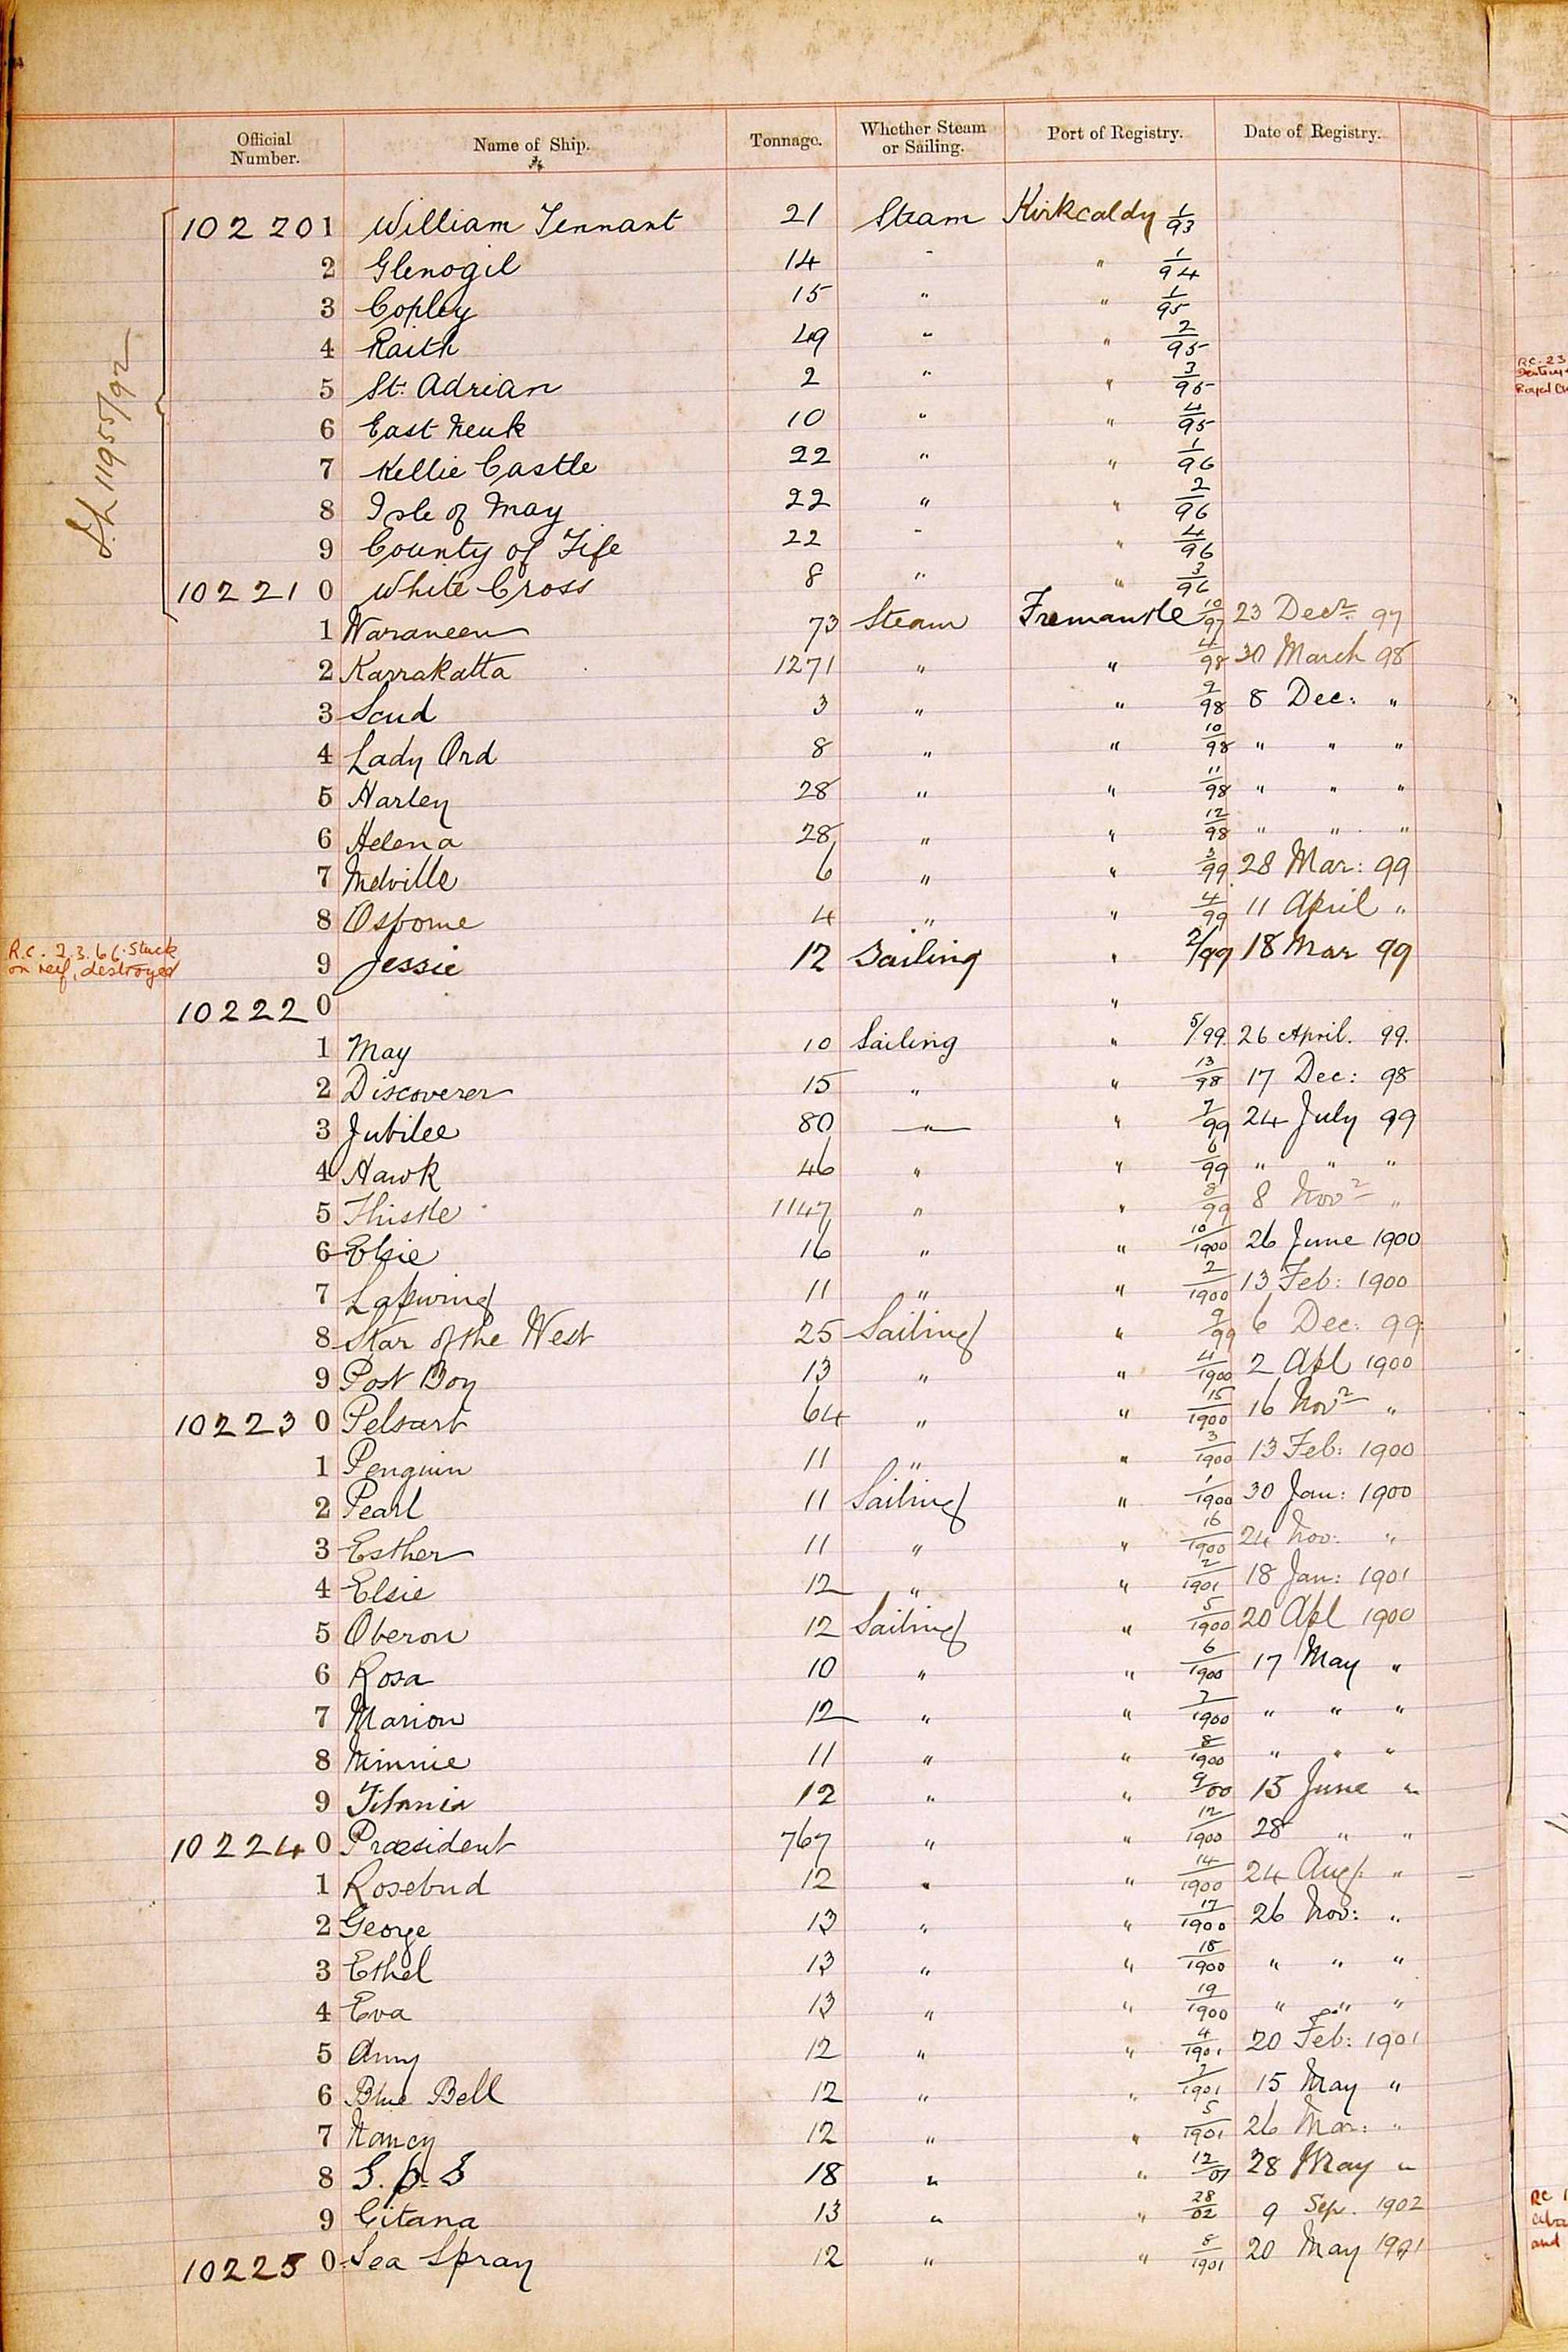 Official Number. Name of Ship. Tonnage. Whether Steam or Sailing. Port of Registry. Date of Registry.
102 201 William Tennant 21 Steam Kirkcaldy 1/93
2 Glenogil 14 " " 1/94
3 Copley 15 " " 1/95
4 Raith 49 " " 2/95
5 St. Adrian 2 " " 3/95
6 East Neuk 10 " " 4/95
7 Kellie Castle 22 " " 1/96
8 Isle of May 22 " " 2/96
9 County of Fife 22 " " 4/96
10221 0 White Cross 8 " " 3/96
11955/92
1 Waraneen 73 Steam Fremantle 10/97 23 Decr. 97
2 Karrakatta 1271 " " 4/98 30 March 98
3 Scud 3 " " 9/98 8 Dec: "
4 Lady Ord 8 " " 10/98 " " "
5 Harley 28 " " 11/98 " " "
6 Helena 28 " " 12/98 " " "
7 Melville 6 " " 3/99 28 Mar: 99
8 Osborne 4 " " 4/99 11 April "
R.C. 2.3.66. Stuck
on reef, destroyed
9 Jessie 12 Sailing " 2/99 18 Mar 99
10222 0 "
1 May 10 Sailing " 5/99. 26 April. 99.
2 Discoverer 15 " " 13/98 17 Dec: 98
3 Jubilee 80 " " 7/99 24 July 99
4 Hawk 46 " " 6/99 " " "
5 Thistle 1147 " " 8/99 8 Novr "
6 Elsie 16 " " 10/1900 26 June 1900
7 Lapwing 11 " " 2/1900 13 Feb: 1900
8 Star of the West 25 Sailing " 9/99 6 Dec: 99
9 Post Boy 13 " " 4/1900 2 Apl 1900
10223 0 Pelsart 64 " " 15/1900 16 Novr "
1 Penguin 11 " " 3/1900 13 Feb: 1900
2 Pearl 11 Sailing " 1/1900 30 Jan: 1900
3 Esther 11 " " 16/1900 24 Nov: "
4 Elsie 12 " " 2/1901 18 Jan: 1901
5 Oberon 12 Sailing " 5/1900 20 Apl 1900
6 Rosa 10 " " 6/1900 17 May "
7 Marion 12 " " 7/1900 " " "
8 Minnie 11 " " 8/1900 " " "
9 Titania 12 " " 9/00 15 June "
10224 0 Præsident 767 " " 12/1900 28 " "
1 Rosebud 12 " " 14/1900 24 Aug: "
2 George 13 " " 17/1900 26 Nov: "
3 Ethel 13 " " 18/1900 " " "
4 Eva 13 " " 19/1900 " " "
5 Amy 12 " " 4/1901 20 Feb: 1901
6 Blue Bell 12 " " 7/1901 15 May "
7 Nancy 12 " " 5/1901 26 Mar: "
8 18 " " 12/01 28 May "
9 Gitana 13 " " 28/02 9 Sep. 1902
10225 0 Sea Spray 12 " " 8/1901 20 May 1901